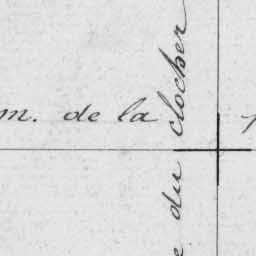 m. de la
du clocher